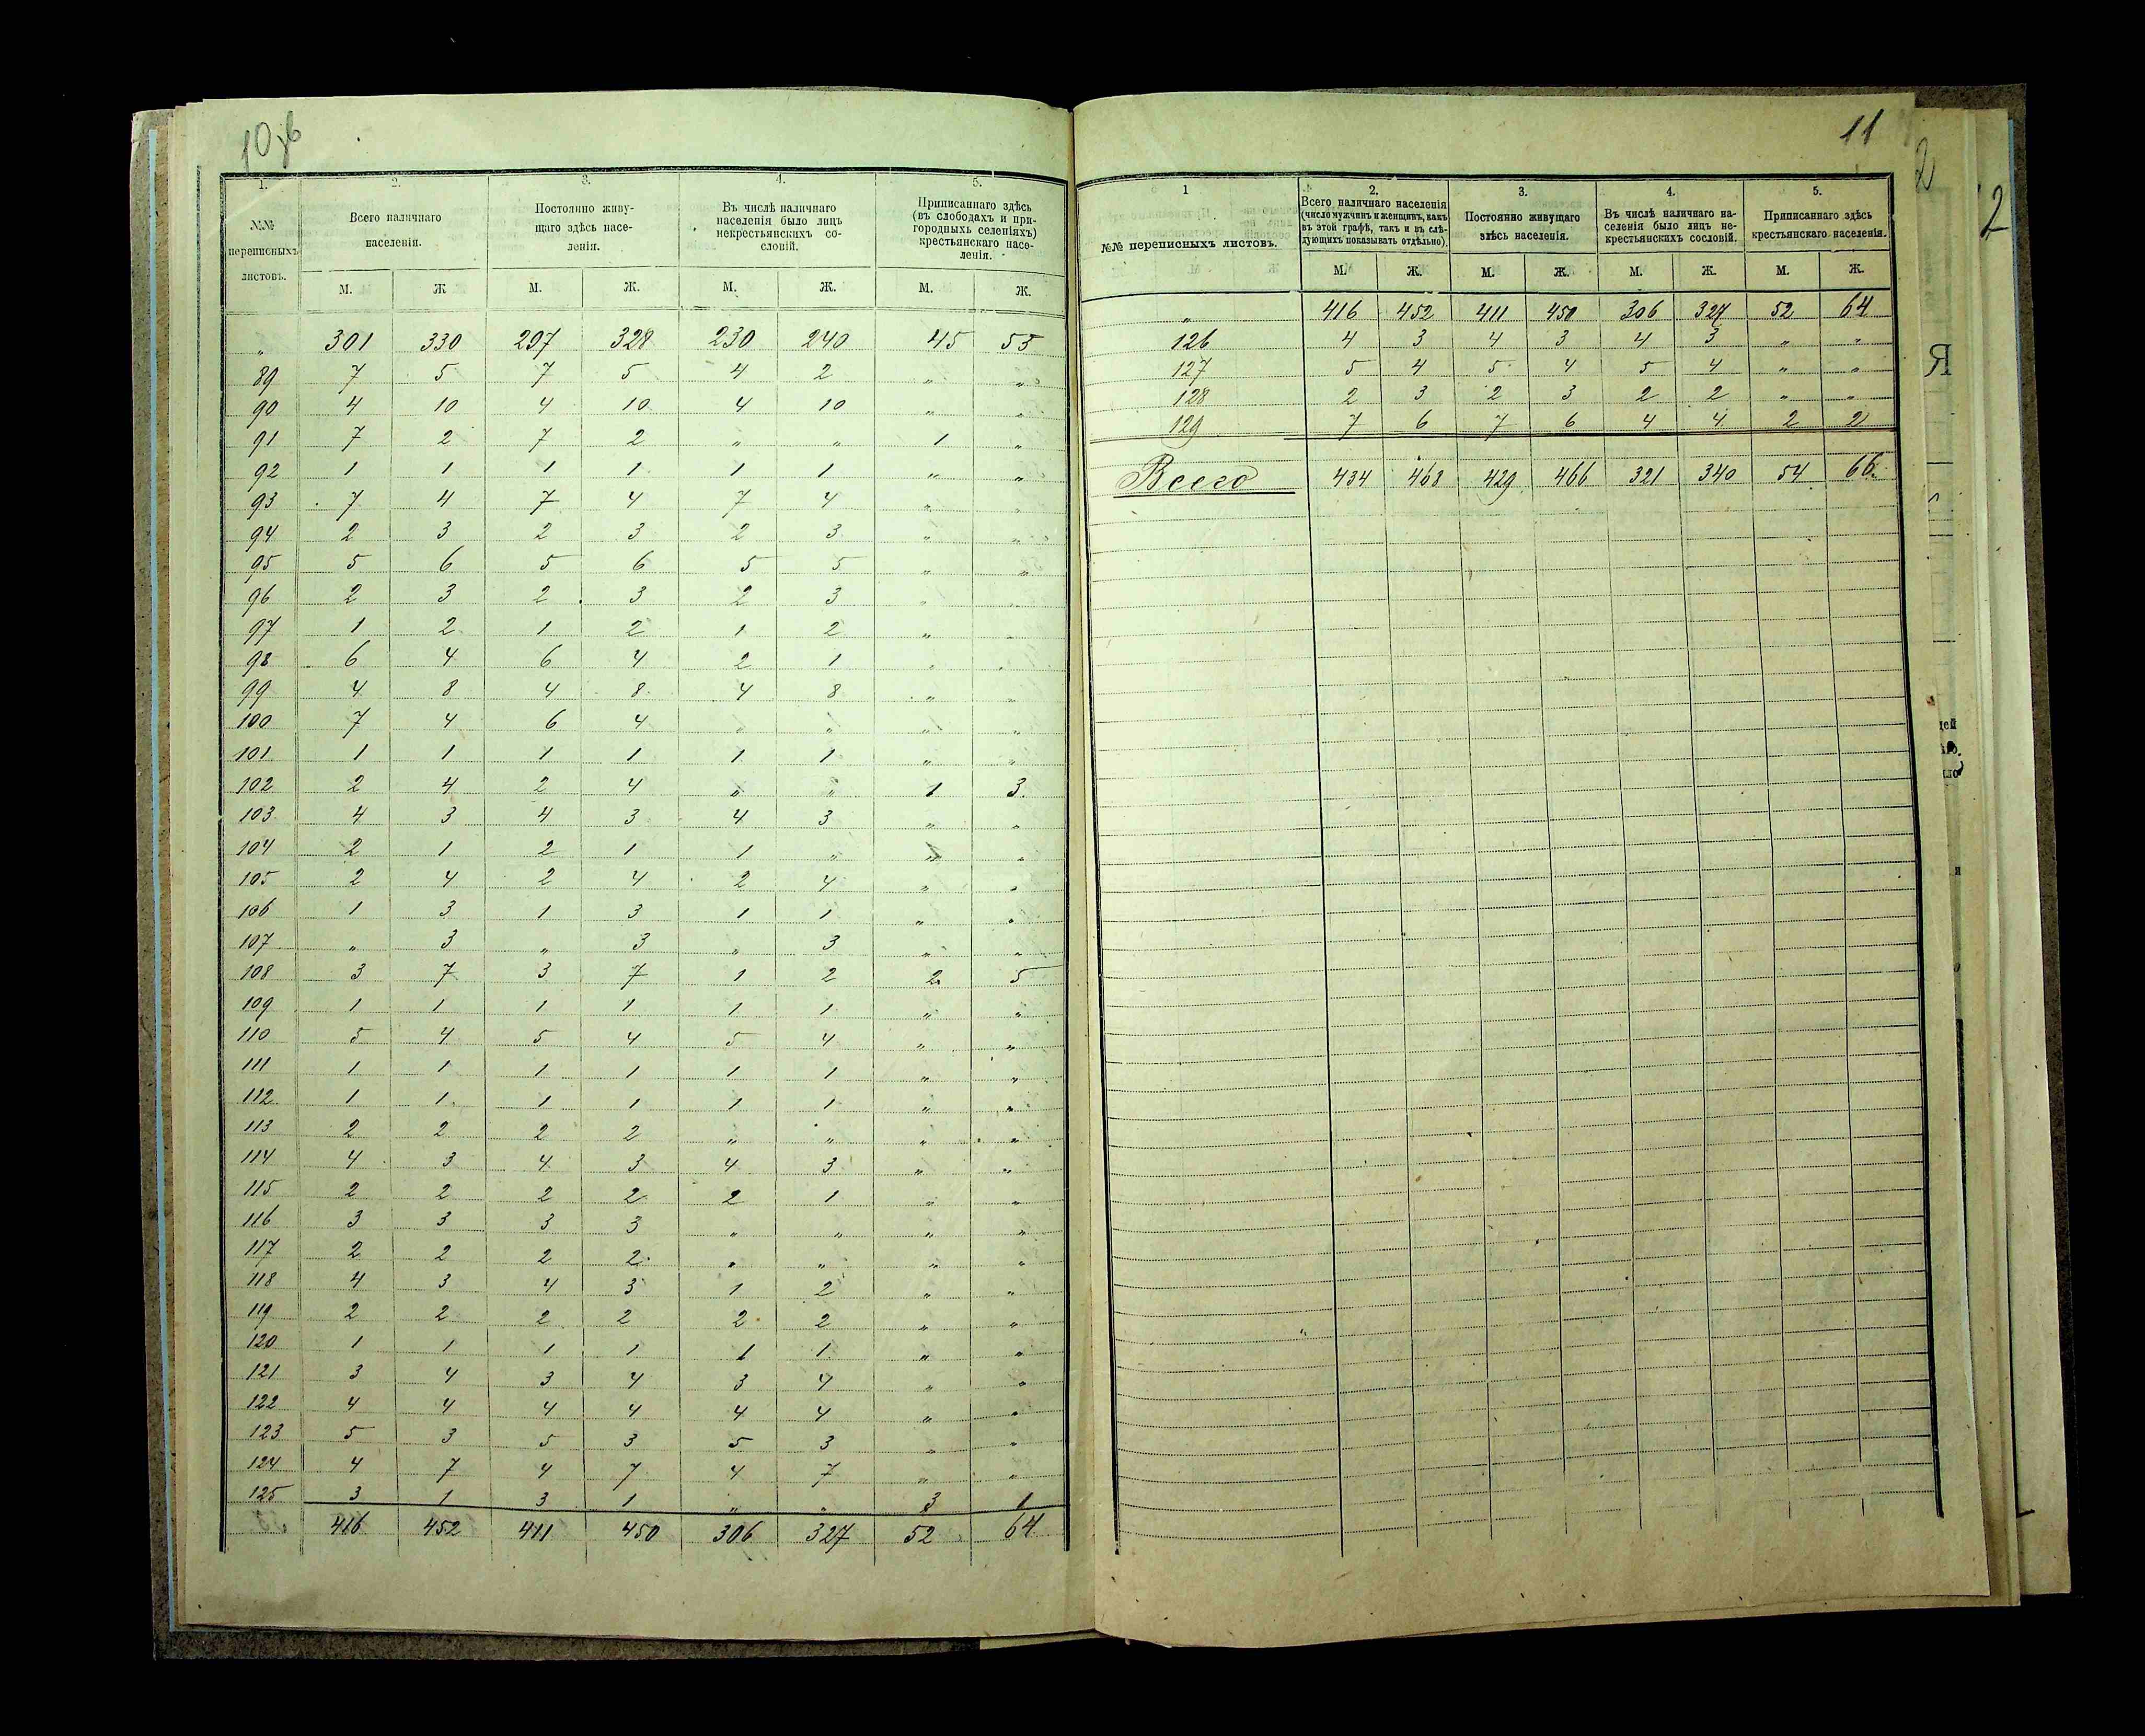 10 об
1. 2. 3. 4. 5.
№№ переписныхъ листовъ.
Всего наличнаго населенія.
Постоянно живущаго здѣсь населенія.
Въ числѣ наличнаго населенія было лицъ некрестьянскихъ сословій.
Приписаннаго здѣсь (въ слободахъ и пригородныхъ селеніяхъ) крестьянскаго населенія.
М. Ж М. Ж. М. Ж. М. Ж.
„ 301 330 297 328 230 240 45 55
89 7 5 7 5 4 2 „ „
90 4 10 4 10 4 10 „ „
91 7 2 7 2 „ „ 1 „
92 1 1 1 1 1 1 „ „
93 7 4 7 4 7 4 „ „
94 2 3 2 3 2 3 „ „
95 5 6 5 6 5 5 „ „
96 2 3 2 3 2 3 „ „
97 1 2 1 2 1 2 „ „
98 6 4 6 4 2 1 „ „
99 4 8 4 8 4 8 „ „
100 7 4 6 4 „ „ „ „
101 1 1 1 1 1 1 „ „
102 2 4 2 4 „ „ 1 3
103 4 3 4 3 4 3 „ „
104 2 1 2 1 1 „ „ „
105 2 4 2 4 2 4 „ „
106 1 3 1 3 1 1 „ „
107 „ 3 „ 3 „ 3 „ „
108 3 7 3 7 1 2 2 5
109 1 1 1 1 1 1 „ „
110 5 4 5 4 5 4 „ „
111 1 1 1 1 1 1 „ „
112 1 1 1 1 1 1 „ „
113 2 2 2 2 „ „ „ „
114 4 3 4 3 4 3 „ „
115 2 2 2 2 2 1 „ „
116 3 3 3 3 „ „ „ „
117 2 2 2 2 „ „ „ „
118 4 3 4 3 1 2 „ „
119 2 2 2 2 2 2 „ „
120 1 1 1 1 1 1 „ „
121 3 4 3 4 3 4 „ „
122 4 4 4 4 4 4 „ „
123 5 3 5 3 5 3 „ „
124 4 7 4 7 4 7 „ „
125 3 1 3 1 „ „ 3 1
416 452 411 450 306 327 52 64
11
1 2. 3. 4. 5.
№№ переписныхъ листовъ.
Всего наличнаго населенія (число мужчинъ и женщинъ, какъ въ этой графѣ, такъ и въ слѣдующихъ показывать отдѣльно).
Постоянно живущаго здѣсь населенія.
Въ числѣ наличнаго населенія было лицъ некрестьянскихъ сословій.
Приписаннаго здѣсь крестьянскаго населенія.
М. Ж. М. Ж. М. Ж. М. Ж.
„ 416 452 411 450 306 327 52 64
126 4 3 4 3 4 3 „ „
127 5 4 5 4 5 4 „ „
128 2 3 2 3 2 2 „ „
129 7 6 7 6 4 4 2 2
Всего 434 468 429 466 321 340 54 66
2
2
Я